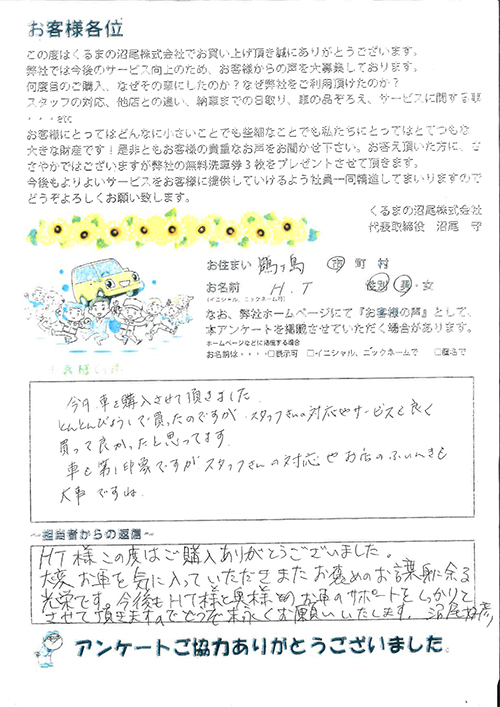 お客様各位
この度はくるまの沼尾株式会社でお買い上げ頂き誠にありがとうございます。
弊社では今後のサービス向上のため、お客様からの声を大募集しております。
何度目のご購入、なぜその車にしたのか?なぜ弊社をご利用頂けたのか?
スタッフの対応、他店との違い、納車までの日取り、車の品ぞろえ、サービスに関する事
・・・etc
お客様にとってはどんなに小さいことでも些細なことでも私たちにとってはとてつもな
大きな財産です!是非ともお客様の貴重なお声をお聞かせ下さい。お答え頂いた方に、さ
さやかではございますが弊社の無料洗車券3枚をプレゼントさせて頂きます。
今後もよりよいサービスをお客様に提供していけるよう社員一同精進してまいりますので
どうぞよろしくお願い致します。
くるまの沼尾株式会社
代表取締役 沼尾 守
お住まい 鶴ヶ島 市 町 村
お名前 H.T 性別 男・女
(イニシャル、ニックネーム可)
なお、弊社ホームページにて『お客様の声』として、
本アンケートを掲載させていただく場合があります。
ホームページなどに掲載する場合
お名前は・・・・□表示可 □イニシャル、ニックネームで □匿名で
今月、車を購入させて頂きました。
とんとんびょうしで買ったのですが、スタッフさんの対応やサービスも良く
買って良かったと思ってます。
車も第1印象ですがスタッフさんの対応やお店のふいんきも
大事ですね。
~担当者からの返信~
HT様この度はご購入ありがとうございました。
大変お車を気に入っていただきまたお褒めのお言葉身に余る
光栄です。今後もHT様と奥様のお車のサポートをしっかりと
させて頂きますのでどうぞ末永くお願いいたします。 沼尾
アンケートご協力ありがとうございました。